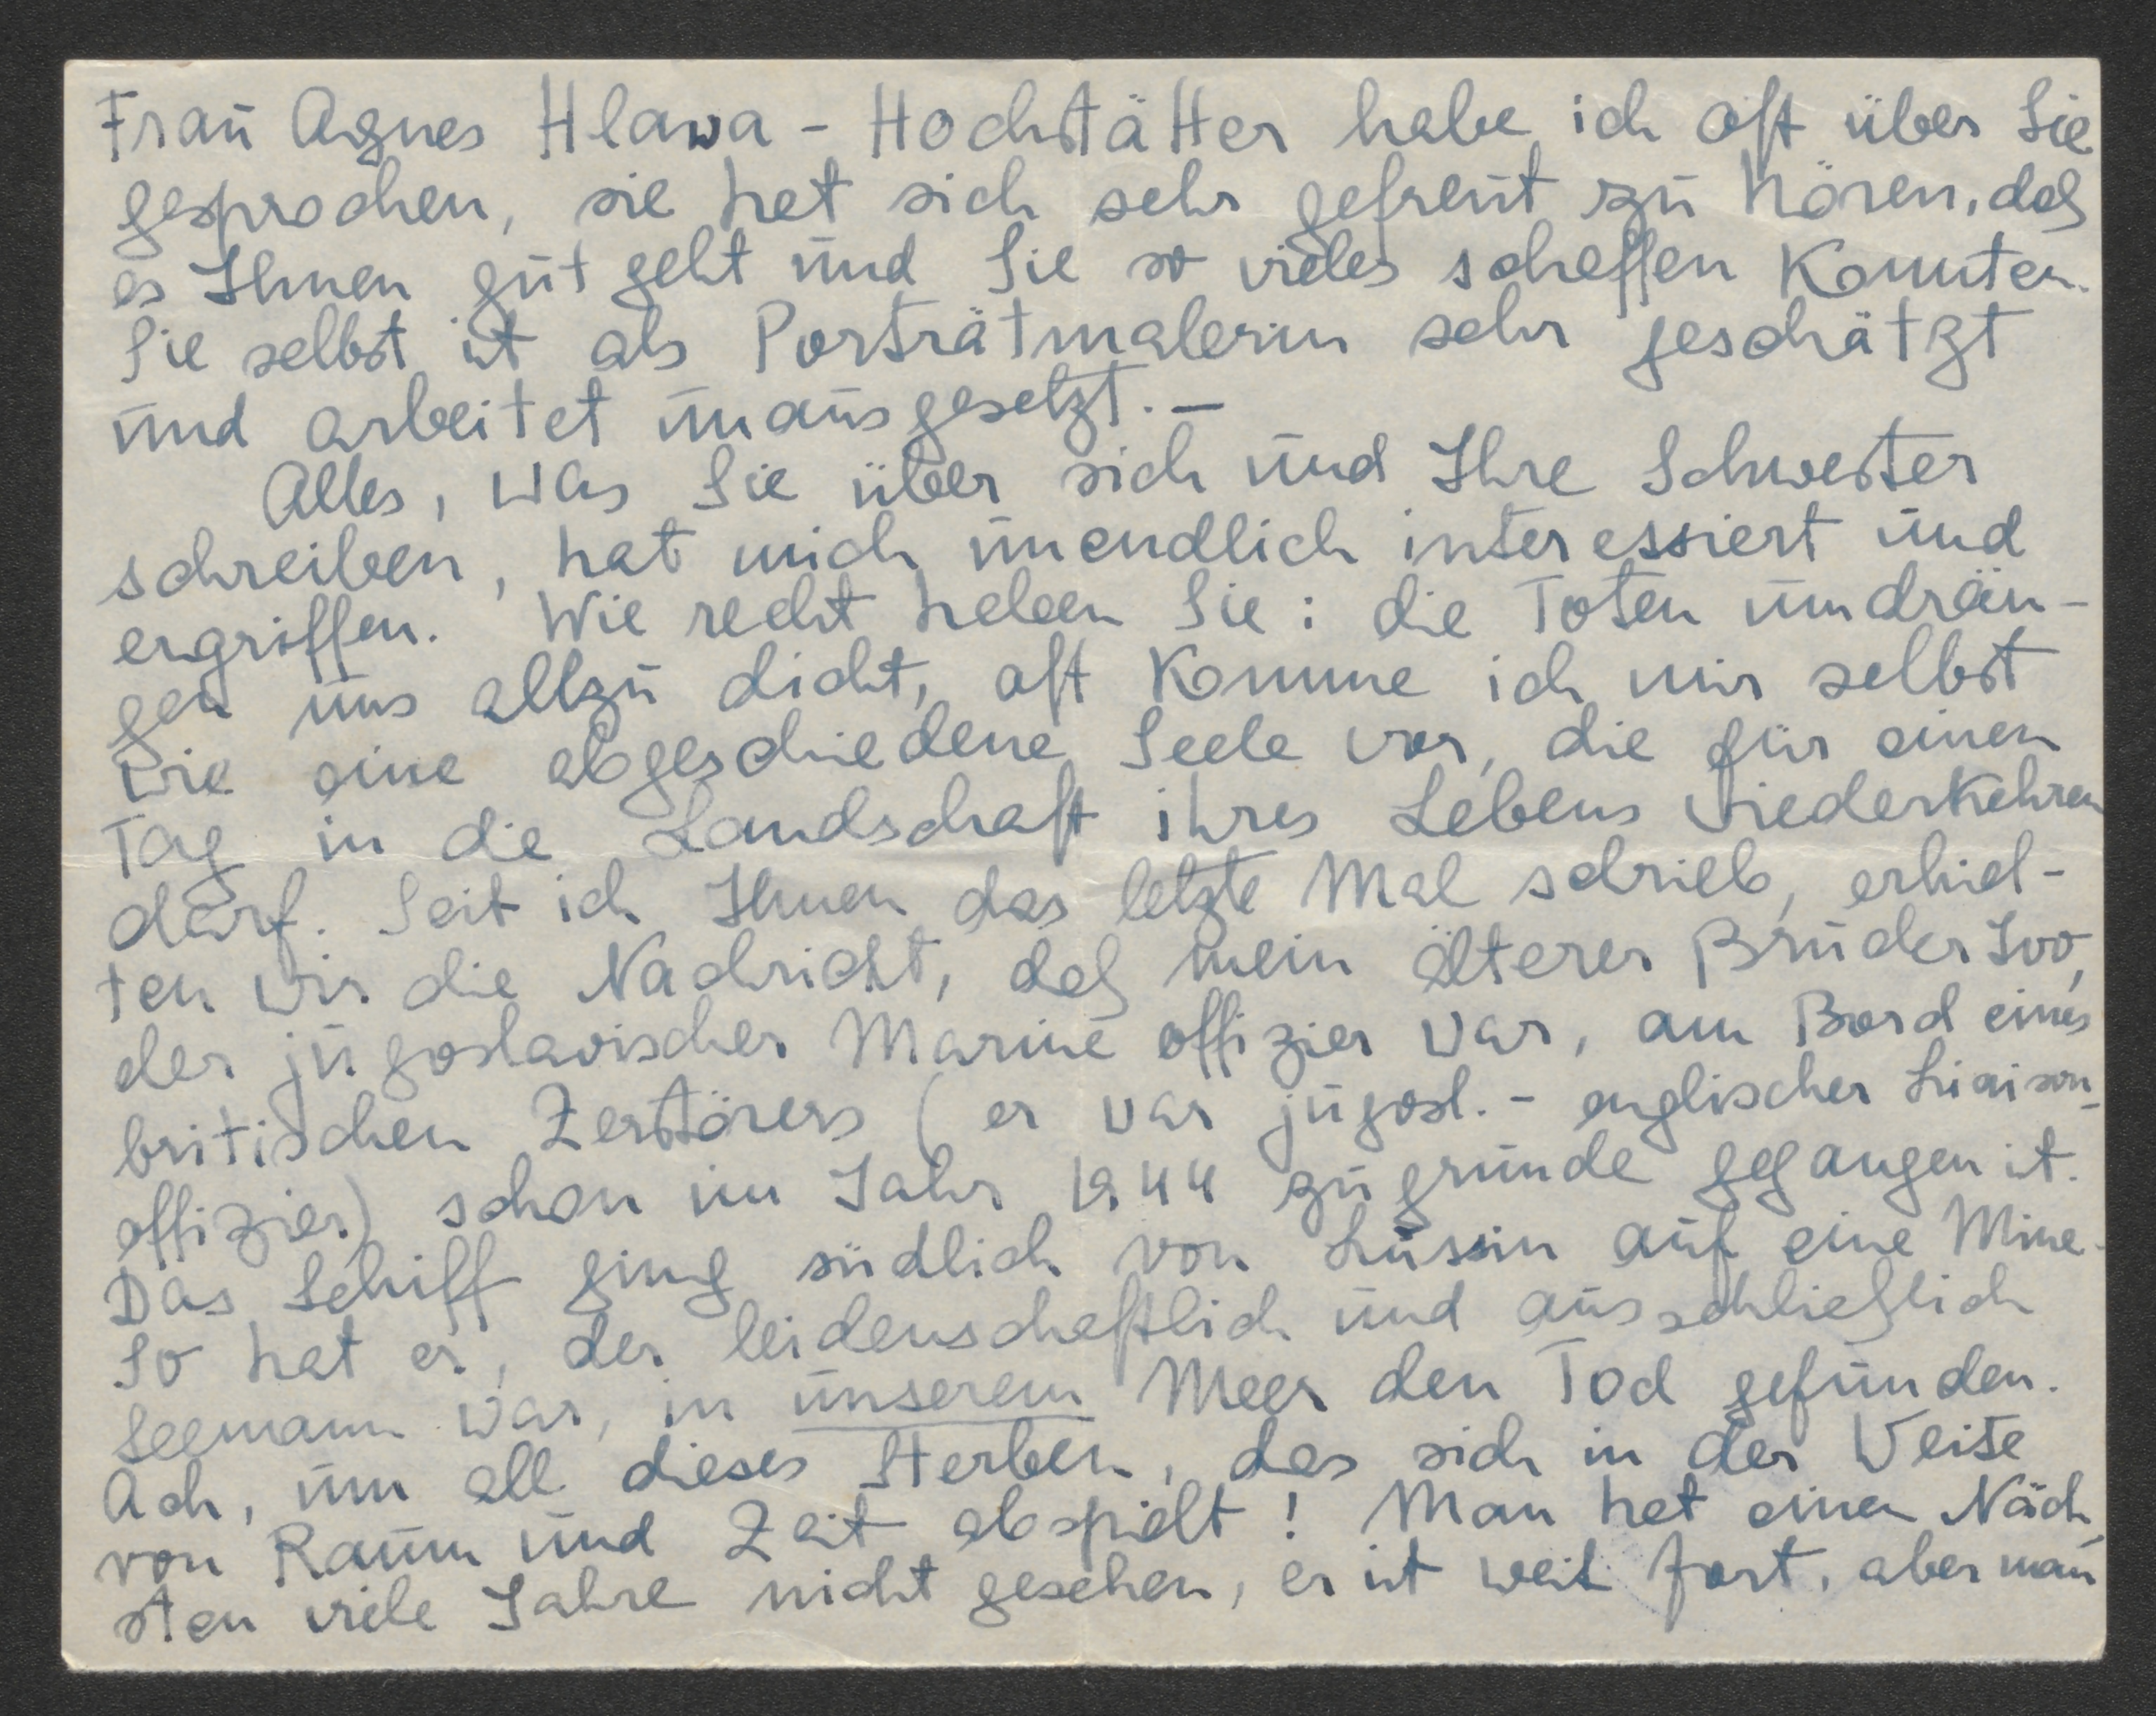 Frau Agnes Hlawa - Hochstätter habe ich oft über Sie
gesprochen, sie hat sich sehr gefreut zu hören, daß
es Ihnen gut geht und Sie so vieles schaffen konnten.
Sie selbst ist als Porträtmalerin sehr geschätzt
und arbeitet unausgesetzt. —
Alles, was Sie über sich und Ihre Schwester
schreiben, hat mich unendlich interessiert und
ergriffen. Wie recht haben Sie: die Toten umdrän-
gen uns allzu dicht, oft komme ich mir selbst
wie eine abgeschiedene Seele vor, die für einen
Tag in die Landschaft ihres Lebens wiederkehren
darf. Seit ich Ihnen das letzte Mal schrieb, erhiel-
ten wir die Nachricht, daß mein älterer Bruder Ivo,
der jugoslavischer Marineoffizier war, am Bord eines
britischen Zerstörers (er war jugosl. - englischer Liaison-
offizier) schon im Jahr 1944 zugrunde gegangen ist.
Das Schiff ging südlich von Lussin auf eine Mine.
So hat er, der leidenschaftlich und ausschließlich
Seemann war, in unserem Meer den Tod gefunden.
Ach, um all dieses Sterben, das sich in der Weite
von Raum und Zeit abspielt! Man hat einen Näch-
sten viele Jahre nicht gesehen, er ist weit fort, aber man